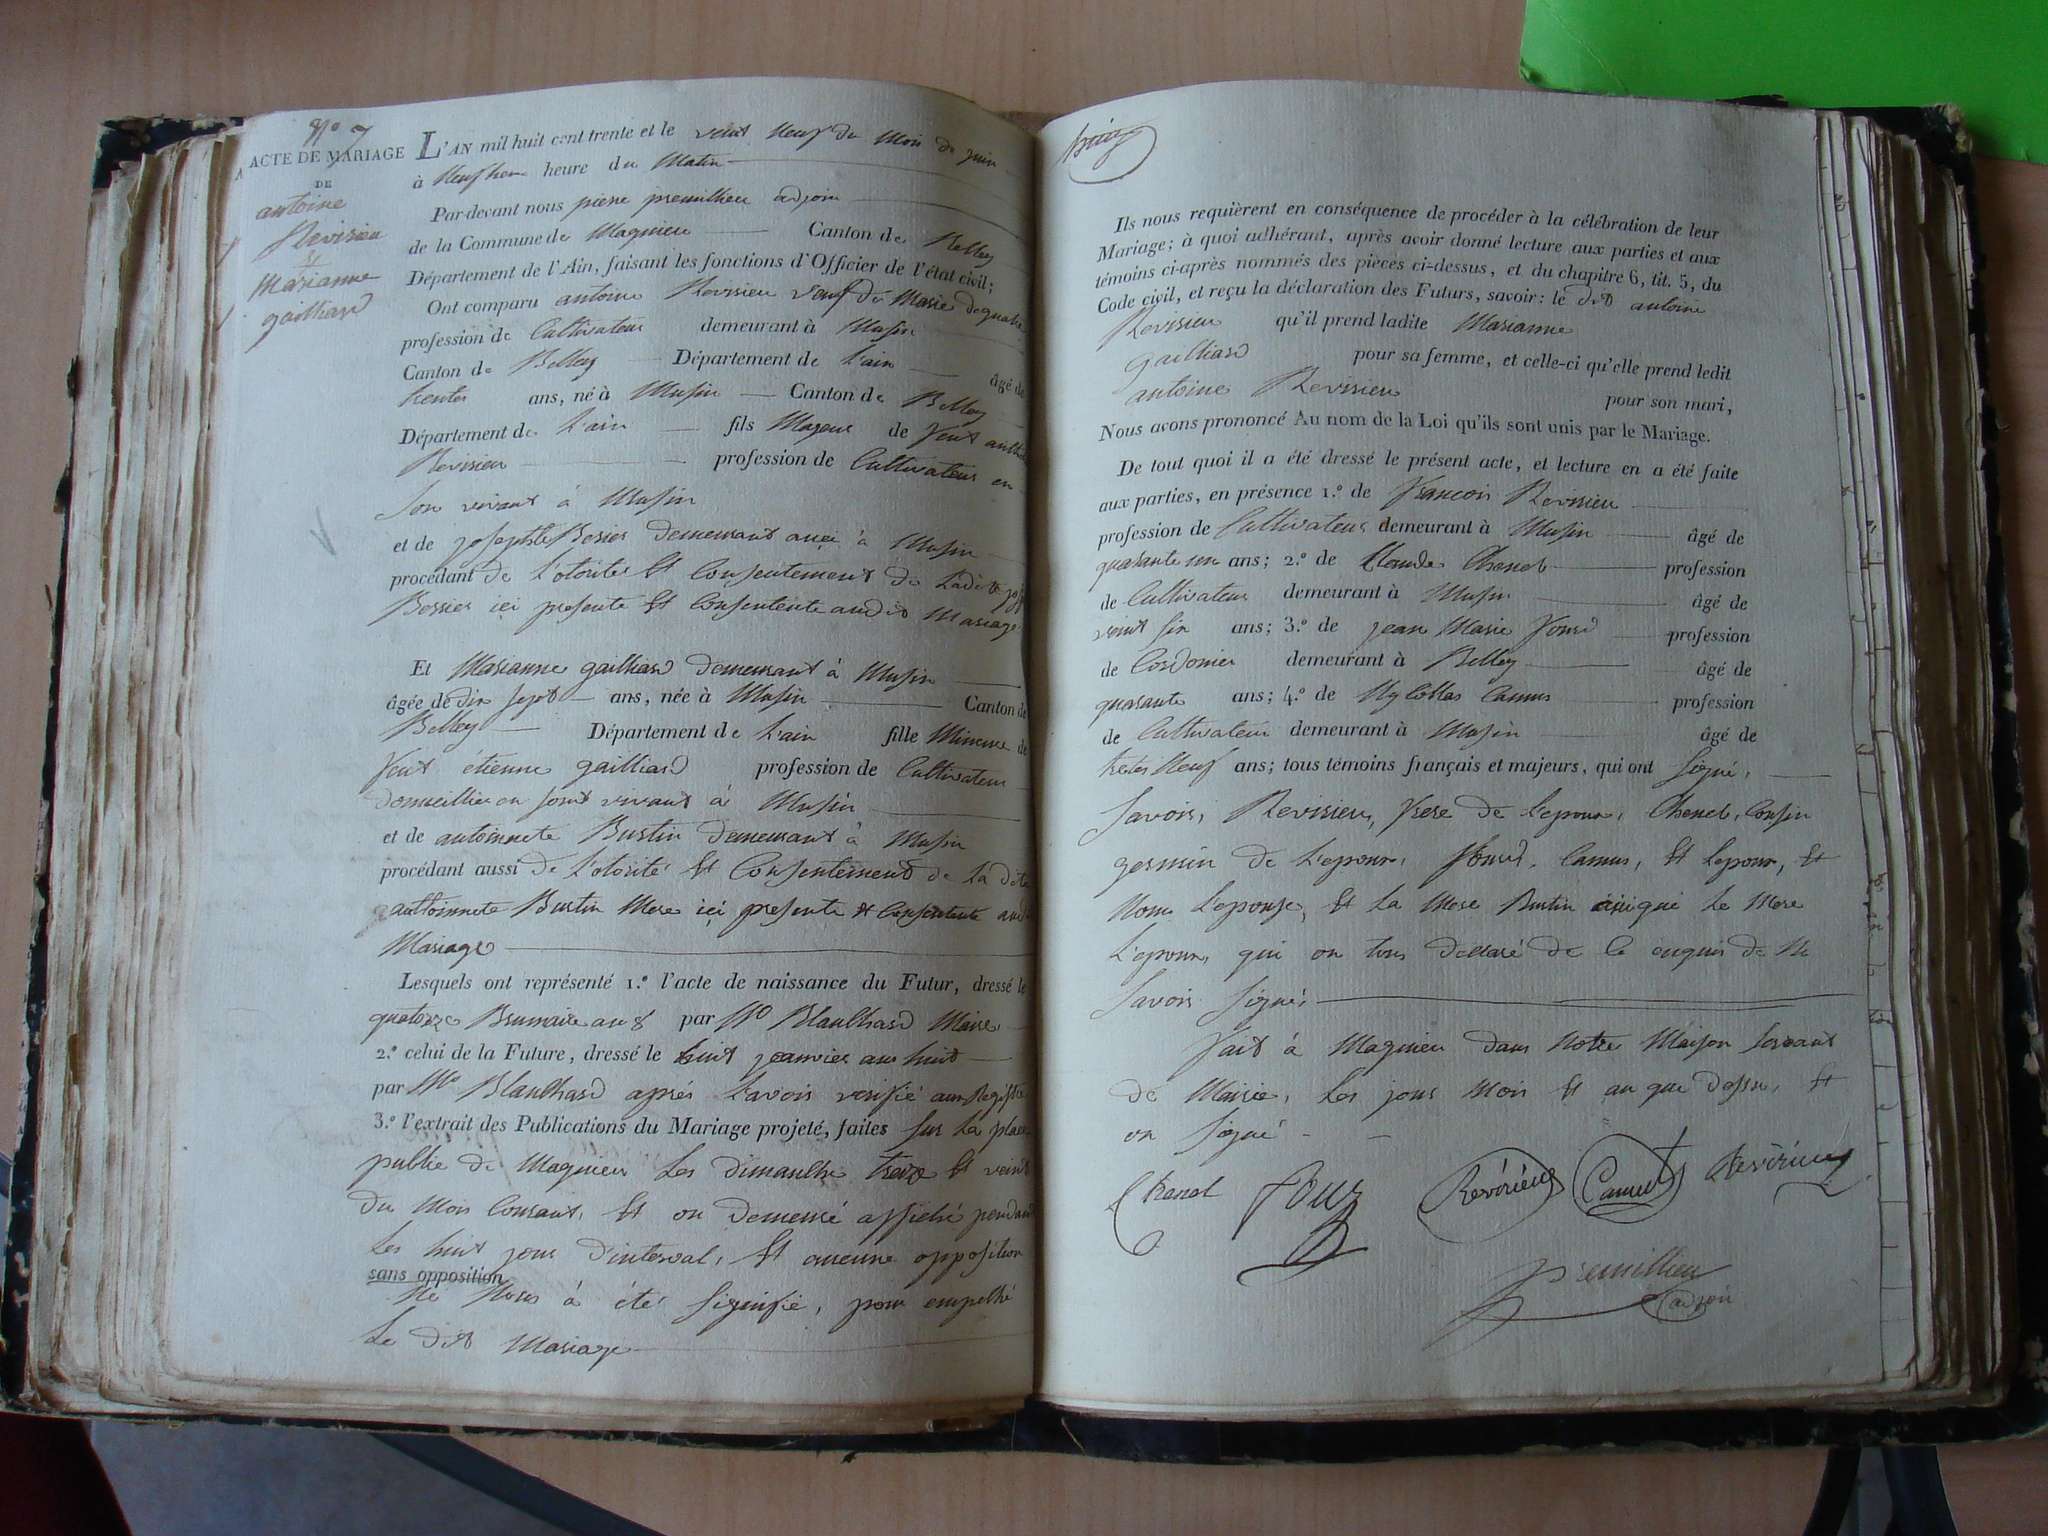 N° 7
ACTE DE MARIAGE
DE
antoine
Revirieu
et
Marianne
gailliard
L'AN mil huit cent trente et le veint neuf du Mois de juin
à Neuf heure heure du Matin
Par-devant nous piere premillieu adjoin
de la Commune de Magnieu Canton de Belley
Département de l'Ain, faisant les fonctions d'Officier de l'état civil;
Ont comparu antoine Revirieu veuf de Marie
profession de Cultivateur demeurant à Musin
Canton de Belley Département de L'ain âgé de
trente ans, né à Musin Canton de Belley
Département de L'ain fils Majeur de feut
Revirieu profession de Cultivateur en
son vivant à Musin
et de Bessier demeurant à Musin
procédant de L'otorite Et Consentement de Ladite
Bessier içi presente Et Consentente audit Mariage
Et Marianne gailliard demeurant à Musin
âgée de dix sept ans, née à Musin Canton de
Belley Département de L'ain fille Mineure de
feut étienne gailliard profession de Cultivateur
en sont vivant à Musin
et de antoinnete Bustin demeurant à Musin
procédant aussi de L'otorité Et Consentement de La dite
anthoinnete Bustin Mere içi presente et Consentente
Mariage
Lesquels ont représenté 1.° l'acte de naissance du Futur, dressé le
quatorze Brumaire an 8 par Mo Blanchard Maire
2.° celui de la Future, dressé le huit
par Mo Blanchard aprés L'avoir verifié
3.° l'extrait des Publications du Mariage projeté, faites sur La place
public de Magnieu Les dimanche treize Et veint
du Mois Courant, Et on demeuré affiché pendant
Les huit jour d'interval, Et aucunne opposition
sans opposition
Né Nous à été signifié, pour empeché
Le dit Mariage
Ils nous requièrent en conséquence de procéder à la célébration de leur
Mariage; à quoi adhérant, après avoir donné lecture aux parties et aux
témoins ci-après nommés des pièces ci-dessus, et du chapitre 6, tit. 5, du
Code civil, et reçu la déclaration des Futurs, savoir: le dit antoine
Revirieu qu'il prend ladite Marianne
gailliard pour sa femme, et celle-ci qu'elle prend ledit
antoine Revirieu pour son mari,
Nous avons prononcé Au nom de la Loi qu'ils sont unis par le Mariage.
De tout quoi il a été dressé le présent acte, et lecture en a été faite
aux parties, en présence 1.° de francois Revirieu
profession de Cultivateur demeurant à Musin âgé de
quarante un ans; 2.° de Claude Chenet profession
de Cultivateur demeurant à Musin âgé de
veint ans; 3.° de jean Marie profession
de Cordonier demeurant à Belley âgé de
quarante ans; 4.° de Nycollas Camus profession
de Cultivateur demeurant à Musin âgé de
Neuf ans; tous témoins français et majeurs, qui ont signé,
savoir, Revirieu, frere de L'epoux, Chenet, Cousin
germin de L'epoux, Camus, Et Lepoux, Et
Non L'epouse, Et La Mere Bustin que Le Mere
L'epoux, qui on tous declaré de Ne
savoir signé,
fait à Magnieu dans Notre Maison servant
de Mairie, Les jour Mois Et an que dessu, Et
on signé
Chenet Revirieu Camus Revirieu
premillieu
adjoin